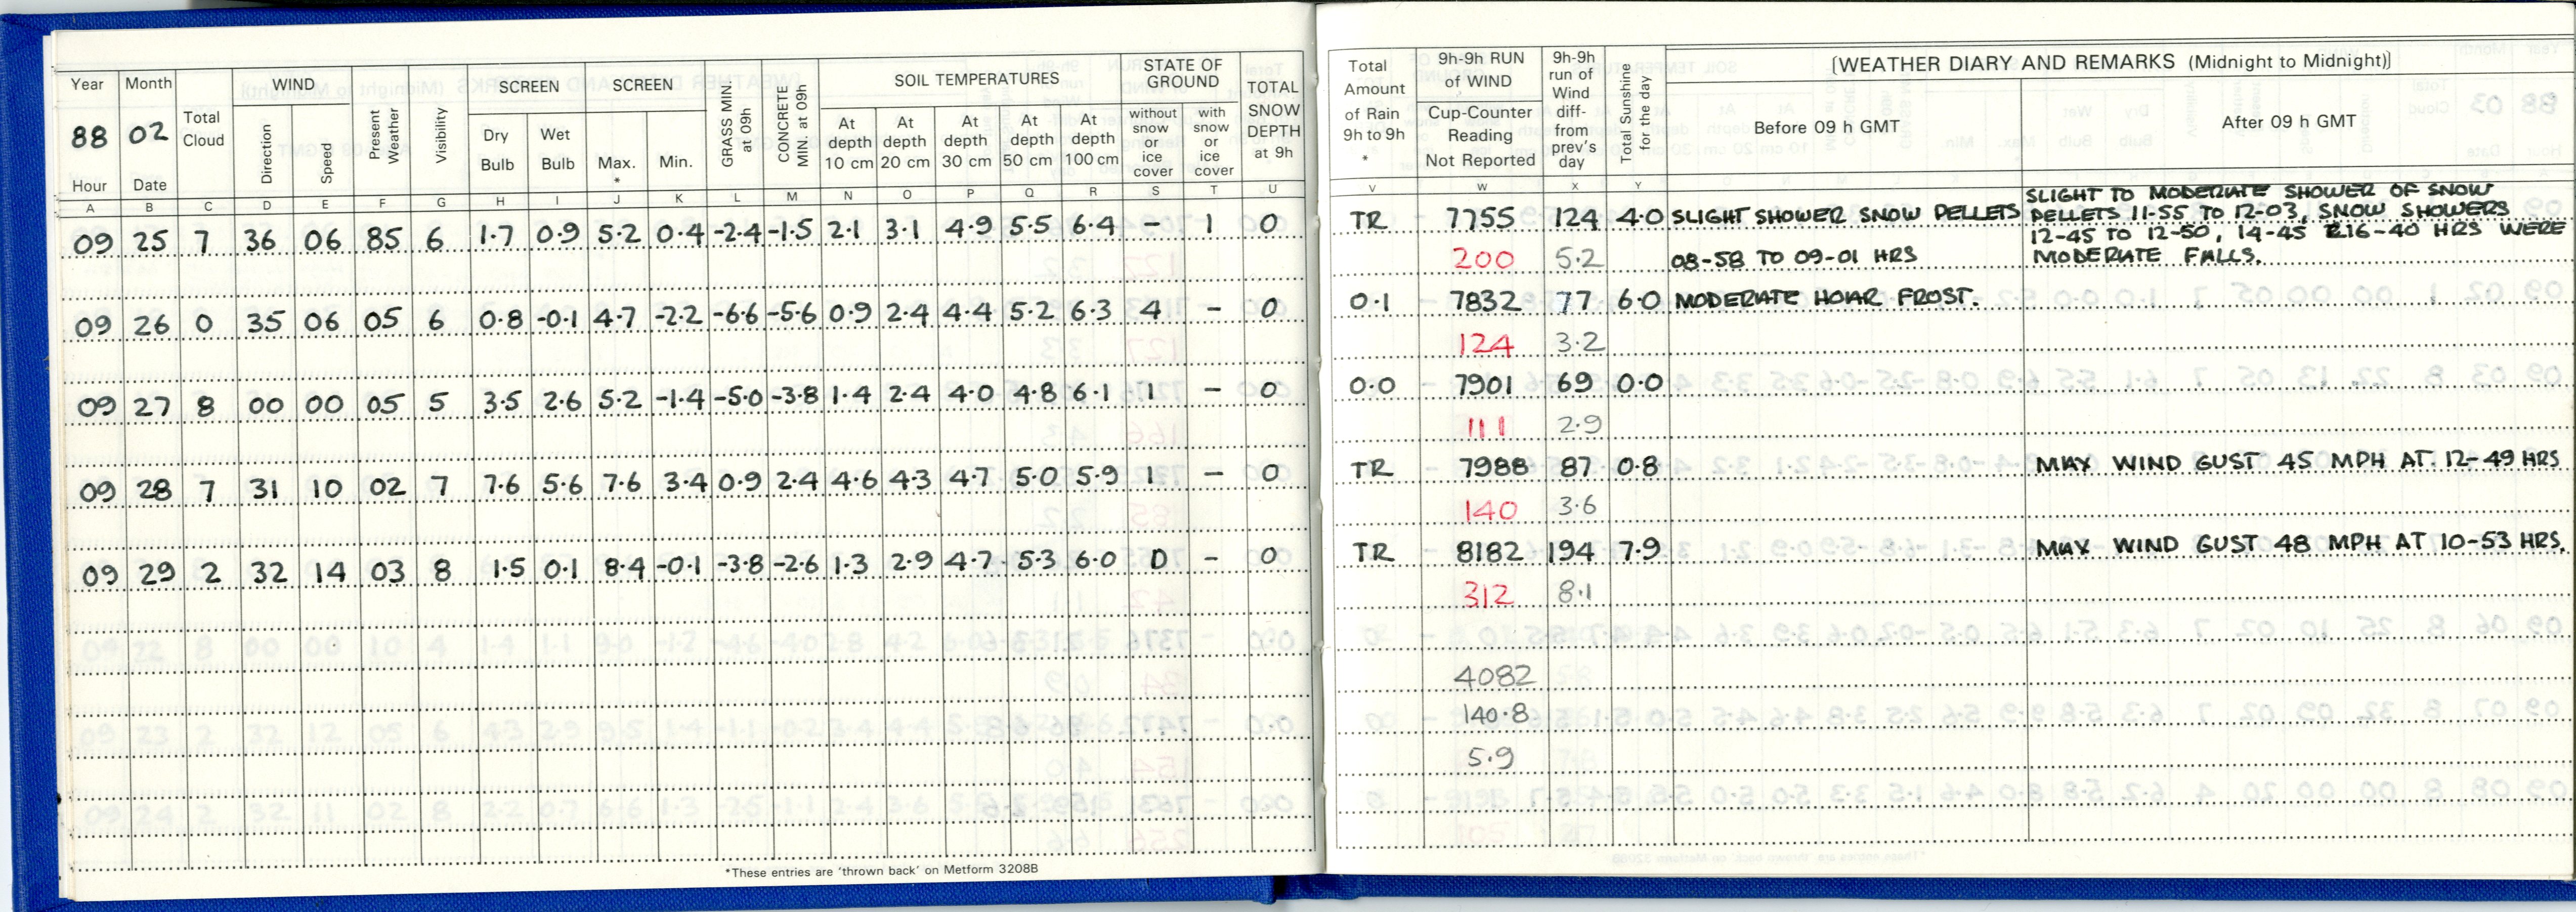 Year Month Total Cloud WIND Present Weather Visibility SCREEN SCREEN GRASS MIN. at 09h CONCRETE MIN. at 09h SOIL TEMPERATURES STATE OF GROUND TOTAL SNOW DEPTH at 9h
88 02 Direction Speed Dry Bulb Wet Bulb Max. * Min. At depth 10 cm At depth 20 cm At depth 30 cm At depth 50 cm At depth 100 cm without snow or ice cover with snow or ice cover
Hour Date
A B C D E F G H I J K L M N O P Q R S T U
09 25 7 36 06 85 6 1.7 0.9 5.2 0.4 -2.4 -1.5 2.1 3.1 4.9 5.5 6.4 - 1 0
09 26 0 35 06 05 6 0.8 -0.1 4.7 -2.2 -6.6 -5.6 0.9 2.4 4.4 5.2 6.3 4 - 0
09 27 8 00 00 05 5 3.5 2.6 5.2 -1.4 -5.0 -3.8 1.4 2.4 4.0 4.8 6.1 1 - 0
09 28 7 31 10 02 7 7.6 5.6 7.6 3.4 0.9 2.4 4.6 4.3 4.7 5.0 5.9 1 - 0
09 29 2 32 14 03 8 1.5 0.1 8.4 -0.1 -3.8 -2.6 1.3 2.9 4.7 5.3 6.0 0 - 0
*These entries are 'thrown back' on Metform 3208B
Total Amount of Rain 9h to 9h * 9h-9h RUN of WIND Cup-Counter Reading Not Reported 9h-9h run of Wind diff- from prev's day Total Sunshine for the day [WEATHER DIARY AND REMARKS (Midnight to Midnight)]
Before 09 h GMT After 09 h GMT
V W X Y
SLIGHT TO MODERATE SHOWER OF SNOW
TR 7755 124 4.0 SLIGHT SHOWER SNOW PELLETS PELLETS 11-55 TO 12-03, SNOW SHOWERS
12-45 TO 12-50, 14-45 &16-40 HRS WERE
200 5.2 08-58 TO 09-01 HRS MODERATE FALLS.
0.1 7832 77 6.0 MODERATE HOAR FROST.
124 3.2
0.0 7901 69 0.0
111 2.9
TR 7988 87 0.8 MAX WIND GUST 45 MPH AT 12-49 HRS
140 3.6
TR 8182 194 7.9 MAX WIND GUST 48 MPH AT 10-53 HRS.
312 8.1
4082
140.8
5.9